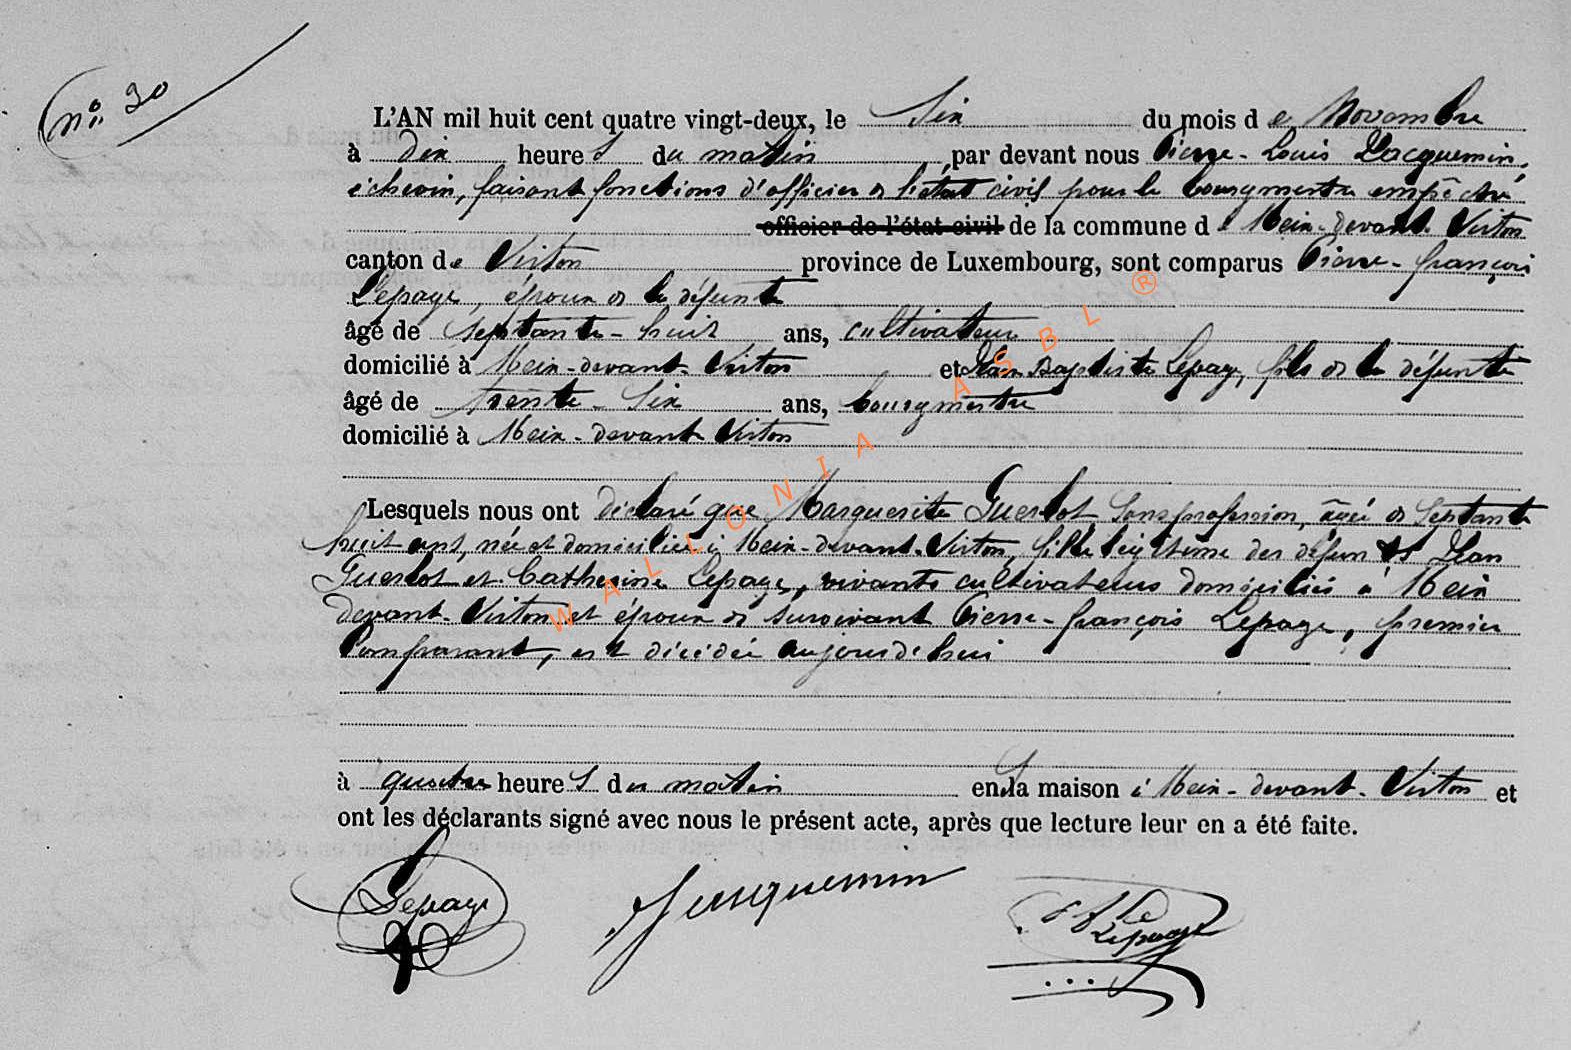 n° 30
L'AN mil huit cent quatre vingt-deux, le six du mois d e Novembre
à dix heure s du matin, par devant nous Pierre-Louis Jacquemin,
échevin, faisant fonctions d'officier de l'état civil pour le bourgmestre empêché
officier de l'état civil de la commune d e Meix-devant-Virton
canton de Virton province de Luxembourg, sont comparus Pierre-françois
Lepage, époux de la défunte
âgé de septante-huit ans, cultivateur
domicilié à Meix-devant-Virton et Jean Baptiste Lepage, fils de la défunte
âgé de trente-six ans, bourgmestre
domicilié à Meix-devant Virton
Lesquels nous ont déclaré que Marguerite Guerlot sans profession, âgée de septante
huit ans, née et domiciliée à Meix-devant-Virton, fille légitime des défunts Jean
Guerlot et Catherine Lepage, vivants cultivateurs domiciliés à Meix
devant-Virton et époux de survivant Pierre-françois Lepage, premier
Comparant, est décédée aujourd'hui
à quatre heure s du matin en sa maison à Meix-devant-Virton et
ont les déclarants signé avec nous le présent acte, après que lecture leur en a été faite.
Lepage Jacquemin Lepage
WALLONIA ASBL ®